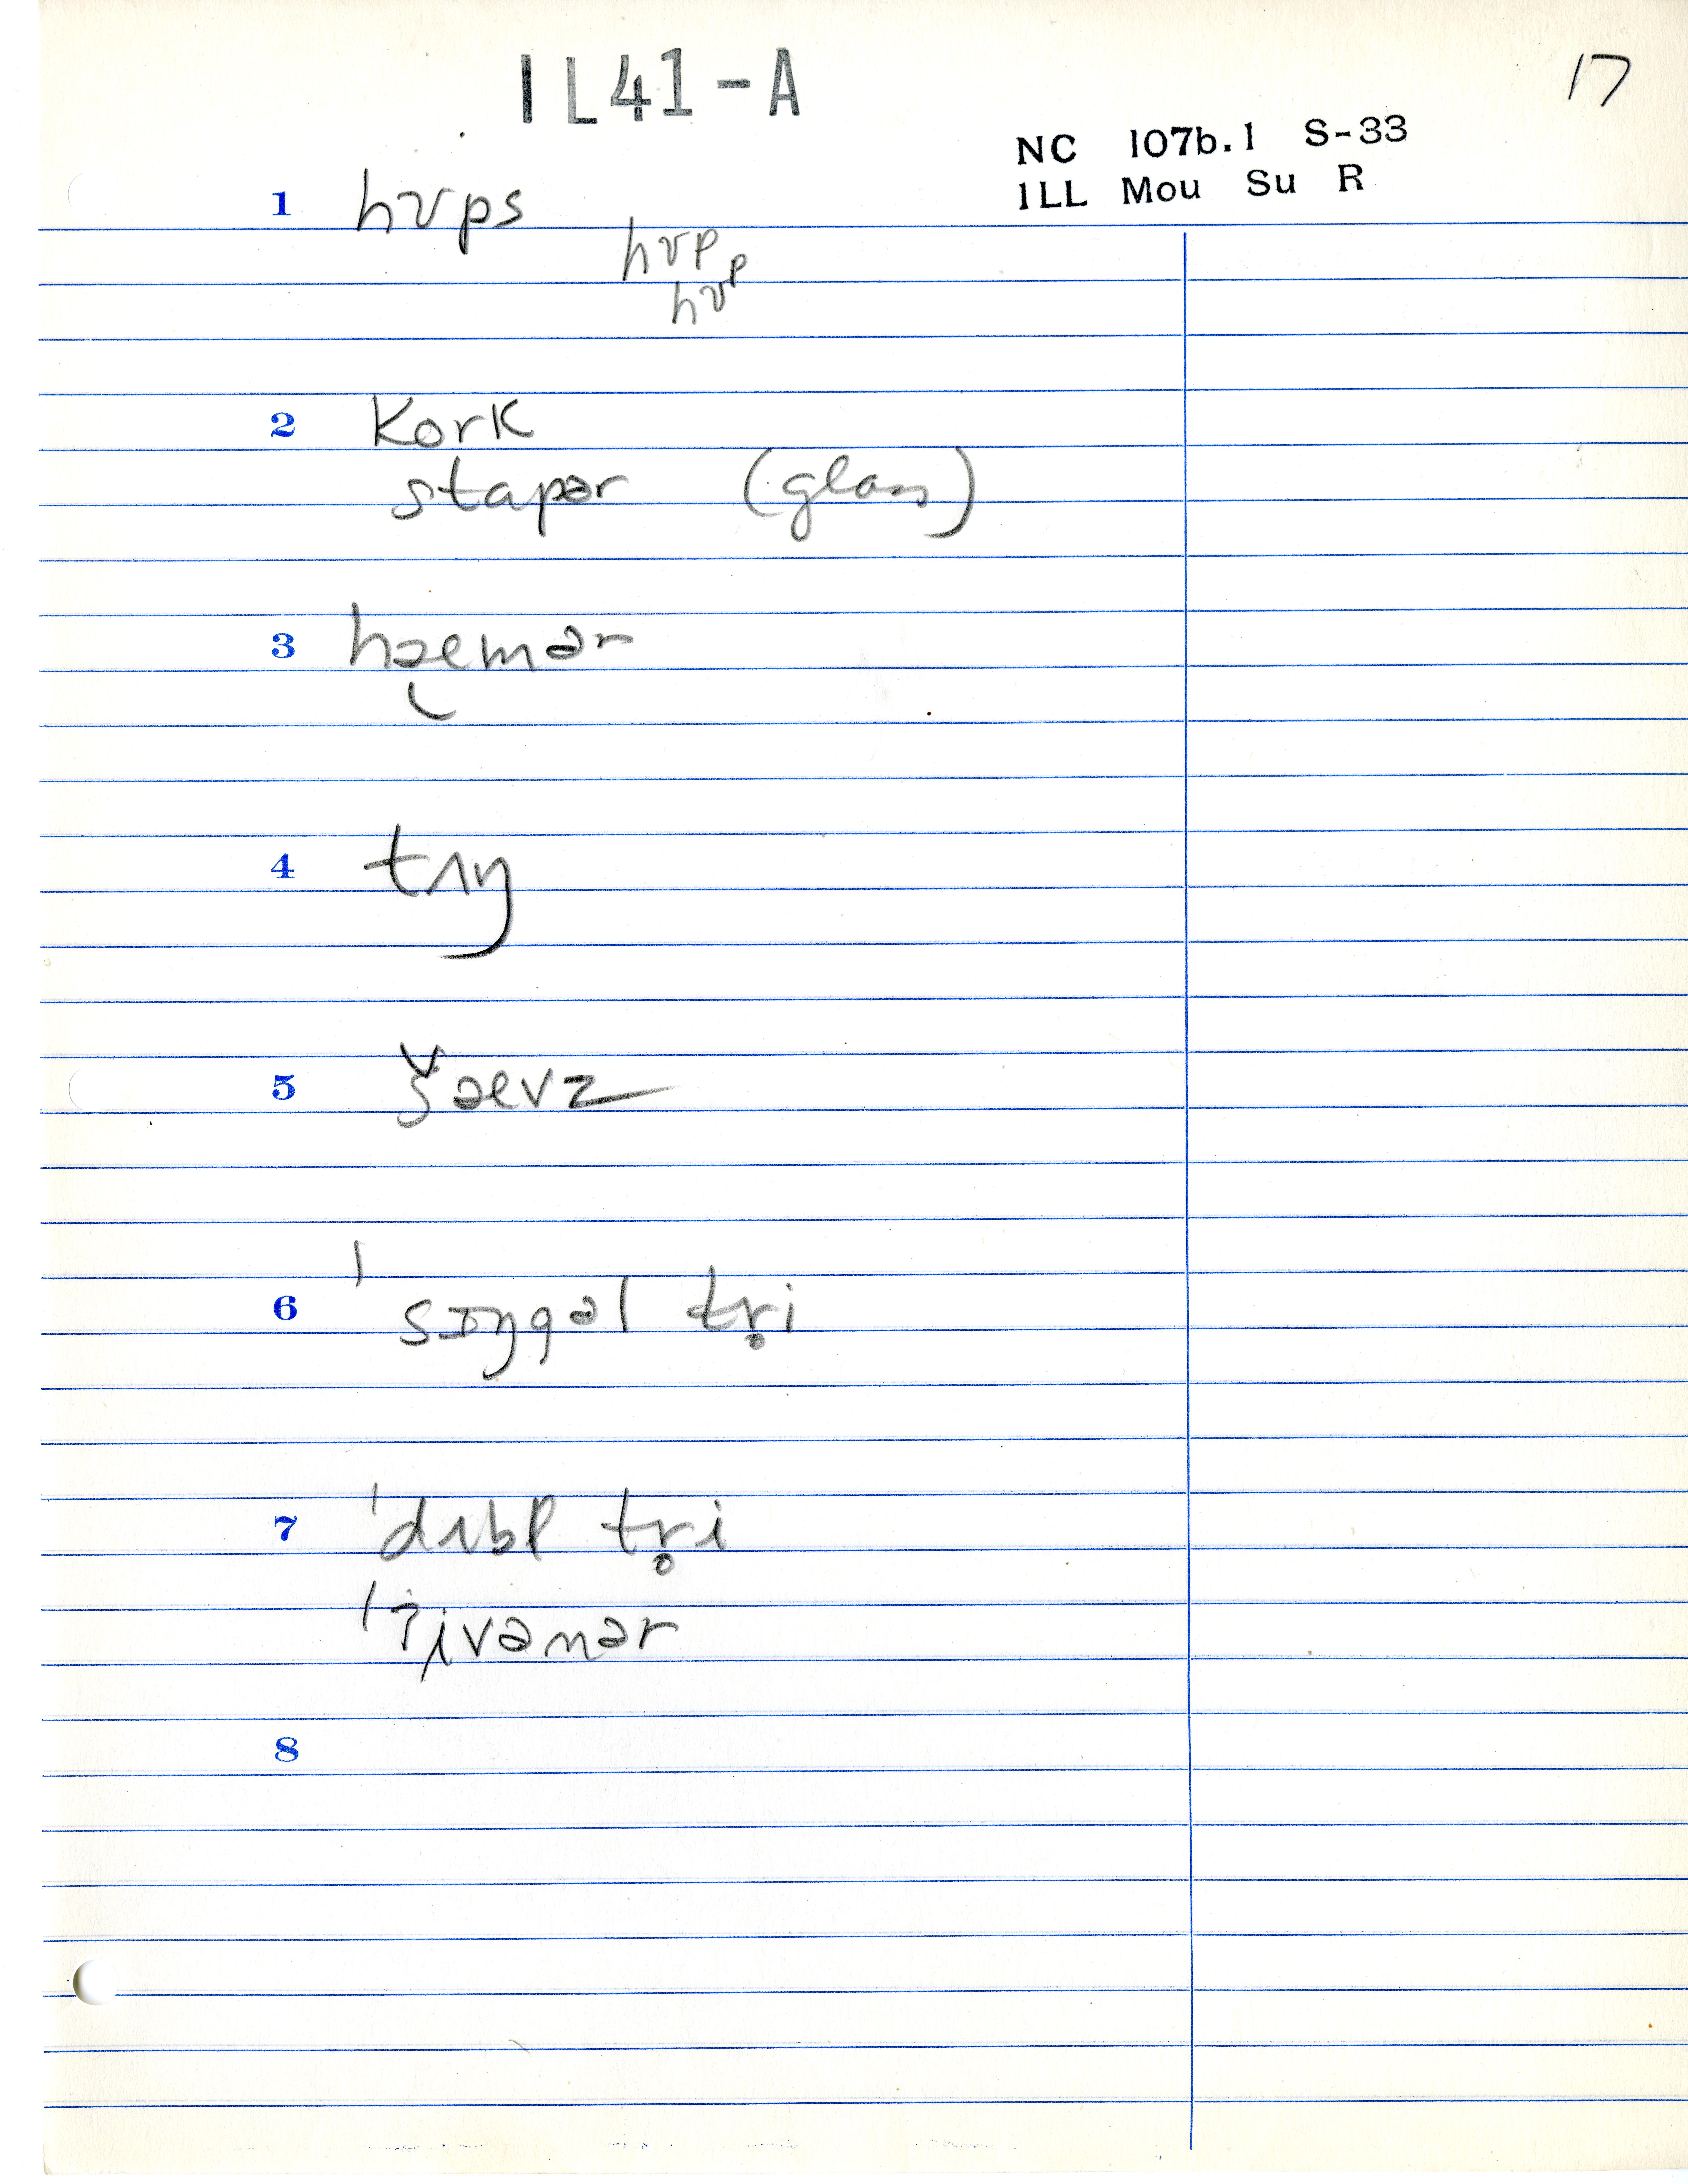 1L41-A
17
NC 107b.1 S-33
ILL Mou Su R
1 hʊps
hʊp
hʊp
2 kork
stapər (glass)
3 hæ̮mər
4 tʌŋ
5 šævz
6 ˈsɪŋgəl tr̥i
7 ˈdʌbl tr̥i
ˈʔivənər
8